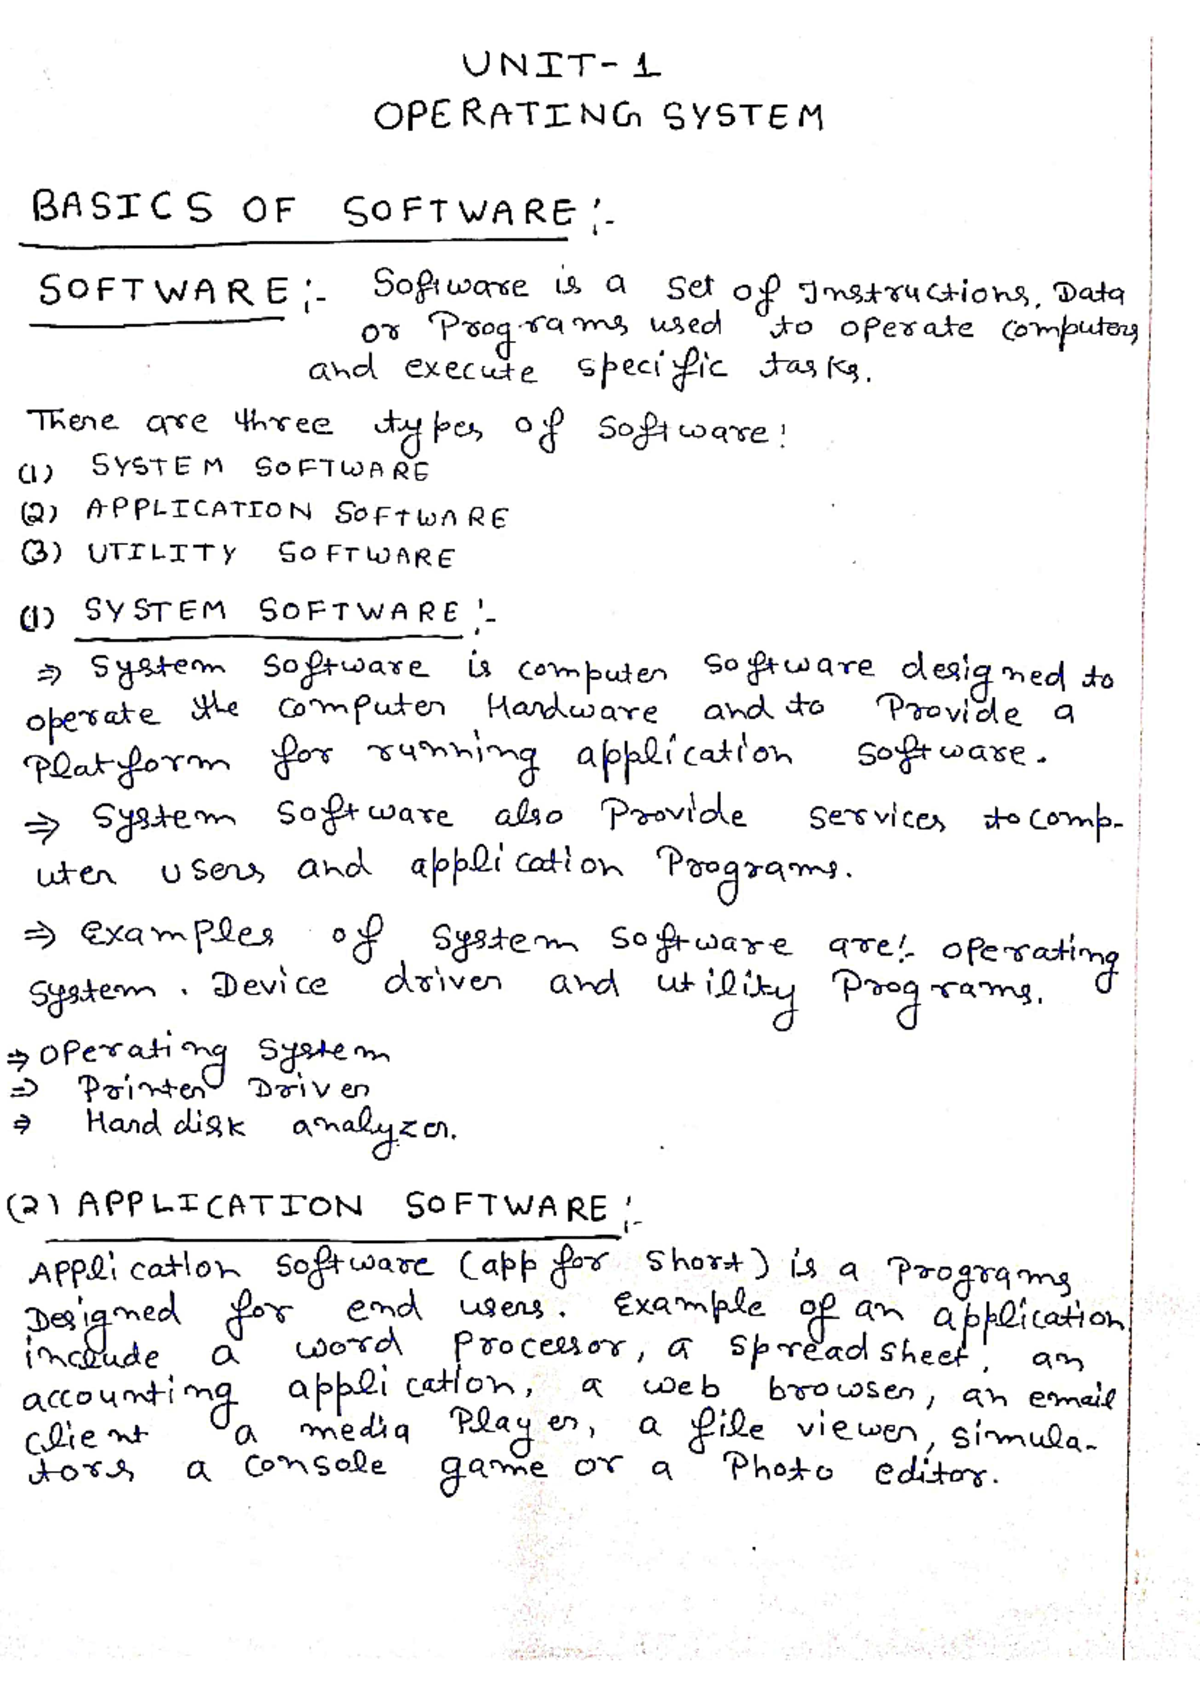 UNIT-1
OPERATING SYSTEM
BASICS OF SOFTWARE :-
SOFTWARE :- Software is a set of Instructions, Data
or Programs used to operate computers
and execute specific tasks.
There are three types of software:
(1) SYSTEM SOFTWARE
(2) APPLICATION SOFTWARE
(3) UTILITY SOFTWARE
(1) SYSTEM SOFTWARE :-
⇒ System software is computer software designed to
operate the computer Hardware and to Provide a
Platform for running application software.
⇒ System software also Provide services to comp-
uter users and application Programs.
⇒ Examples of system software are:- operating
system. Device driver and utility Programs.
⇒ operating system
⇒ Printer Driver
⇒ Hard disk analyzer.
(2) APPLICATION SOFTWARE :-
Application software (app for short) is a Programs
Designed for end users. Example of an application
include a word Processor, a spread sheet, an
accounting application, a web browser, an email
client a media Player, a file viewer, simula-
tors a console game or a Photo editor.